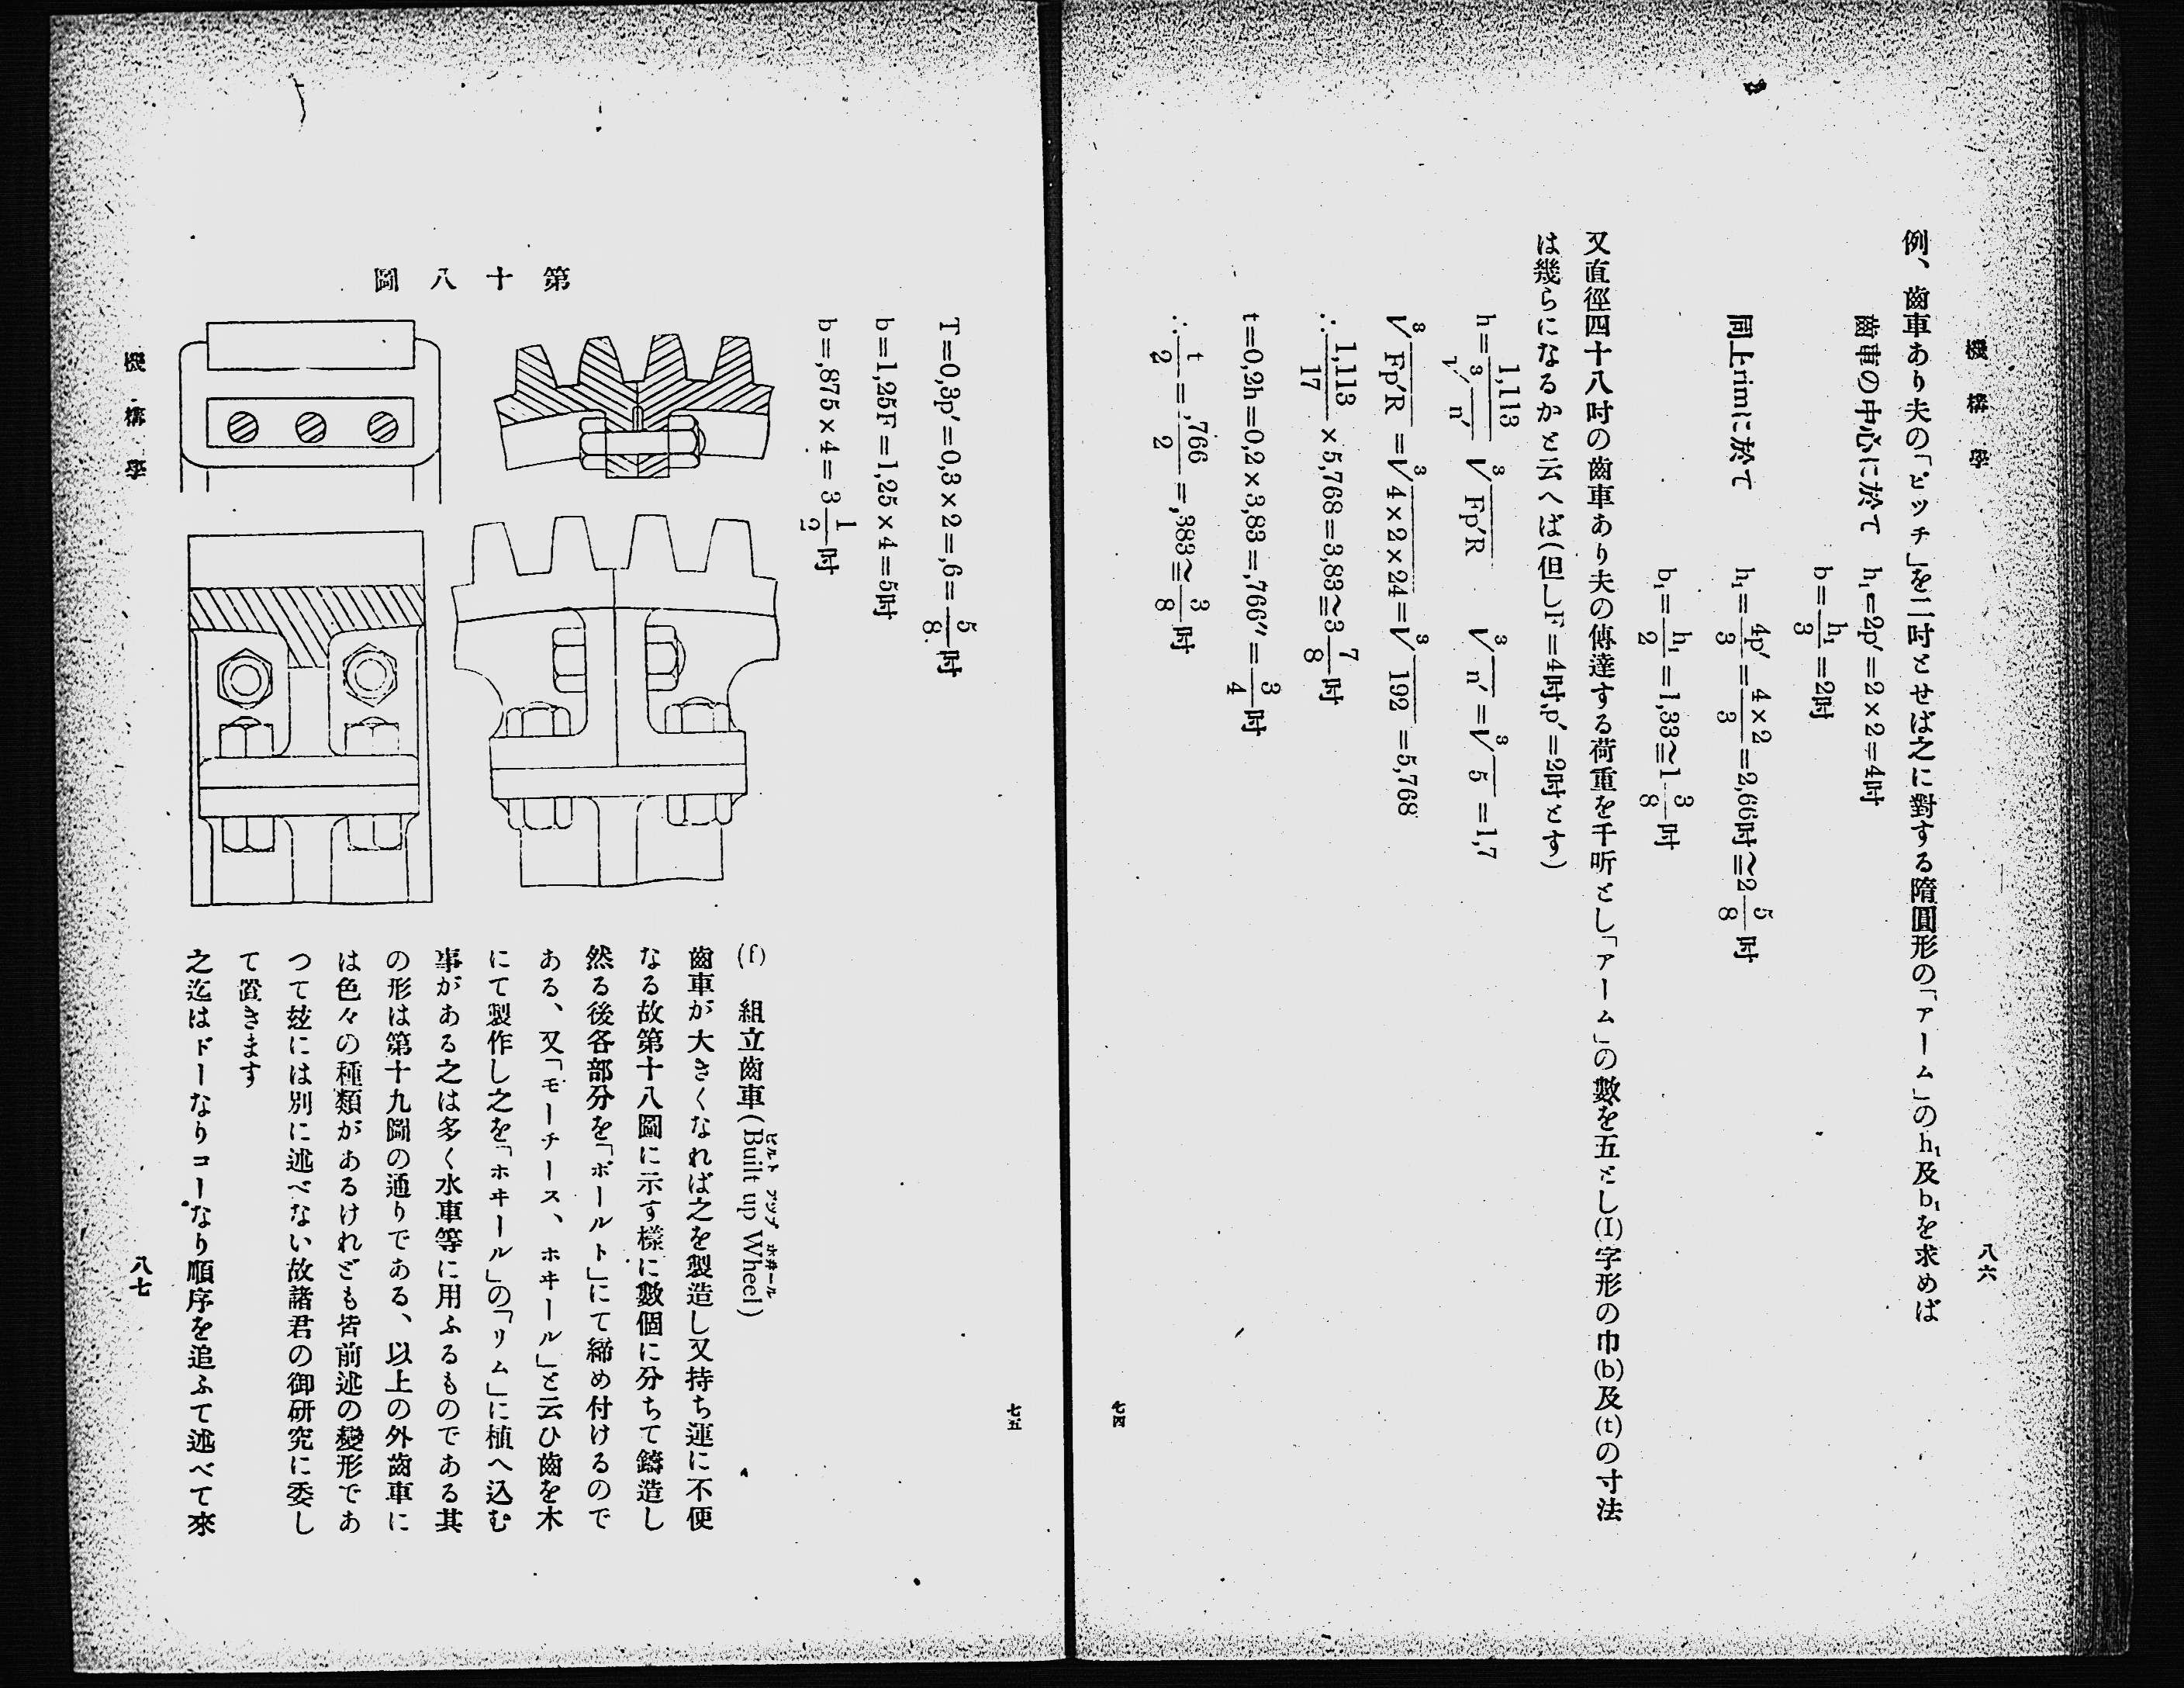 機構學
八六
例、齒車あり夫の「ピツチ」を二吋とせば之に對する隋圓形の「アーム」のh₁及b₁を求めば
齒車の中心に於て h₁=2p'=2×2=4吋
b=h₁/3=2吋
同上rimに於て h₁=4p'/3=4×2/3=2,66吋≅2 5/8吋
b₁=h₁/2=1,33≅1 3/8吋
又直徑四十八吋の齒車あり夫の傳達する荷重を千听とし「アーム」の數を五とし(I)字形の巾(b)及(t)の寸法
は幾らになるかと云くば(但しF=4吋,p'=2吋とす)
h=1,113/∛n' ∛Fp'R ∛n'=∛5=1,7
∛Fp'R=∛4×2×24=∛192=5,768
∴1,113/17×5,768=3,83≅3 7/8吋
t=0,2h=0,2×3,83=,766″=3/4吋
∴t/2=,766/2=,383≅3/8吋
七四
七五
T=0,3p'=0,3×2=,6=5/8吋
b=1,25F=1,25×4=5吋
b=,875×4=3 1/2吋
第十八圖
(f) 組立齒車(Built up Wheel)
ビルト アツプ ホ井ール
齒車が大きくなれば之を製造し又持ち運に不便
なる故第十八圖に示す樣に數個に分ちて鑄造し
然る後各部分を「ボールト」にて締め付けるので
ある、又「モーチース、ホヰール」と云ひ齒を木
にて製作し之を「ホヰール」の「リム」に植へ込む
事がある之は多く水車等に用ふるものである其
の形は第十九圖の通りである、以上の外齒車に
は色々の種類があるけれども皆前述の變形であ
つて玆には別に述べない故諸君の御研究に委し
て置きます
之迄はドーなりコーなり順序を追ふて述べて來
機構學
八七